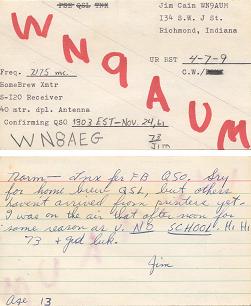 PSE QSL TNX
Jim Cain WN9AUM
134 S.W. J St.
Richmond, Indiana
WN9AUM
UR RST 4-7-9
Freq. 7175 mc.
C.W./
HomeBrew Xmtr
S-120 Receiver
40 mtr. dpl. Antenna
Confirming QSO 1303 EST-Nov. 24, 61
WN8AEG
73
Jim
Norm - tnx fer FB QSO. Sry
for home brew QSL, but others
havent arrived from printers yet.
I was on the air that afternoon for
same reason as u. NO SCHOOL. Hi Hi
73 + gud luk.
Jim
Age 13